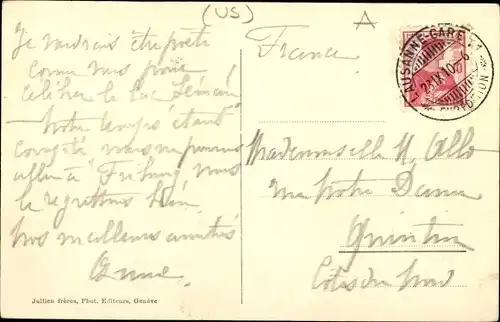 (US)
A
Je voudrais être poète
comme vous pour
célébrer le Lac Léman
Notre temps étant
compté nous ne pouvons
aller à Fribourg nous
le regrettons bien
Nos meilleures amitiés
Anne
France
LAUSANNE-GARE
Mademoiselle M. Allo
rue Notre Dame
Quintin
Côtes du Nord
Jullien frères, Phot. Editeurs, Genève